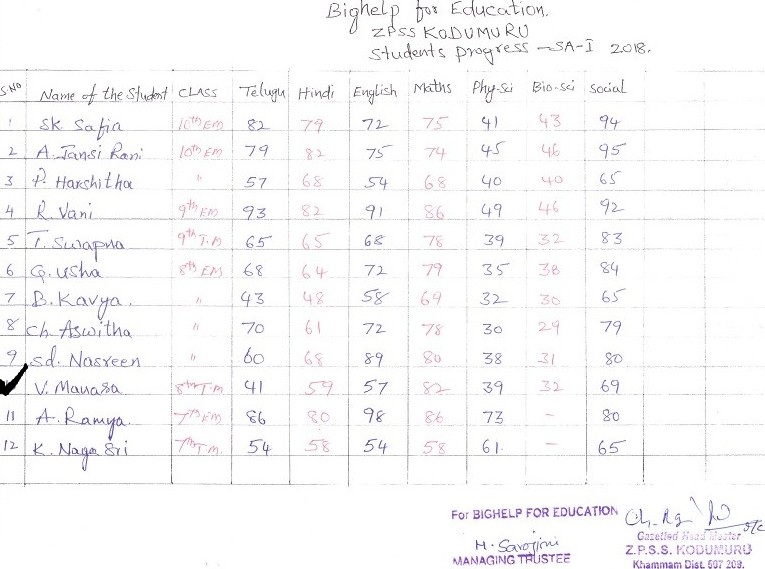 Bighelp for Education.
ZPSS KODUMURU
Students progress - SA-I 2018.
S.NO Name of the Student CLASS Telugu Hindi English Maths Phy-Sci Bio-sci Social
1 SK. Safia 10th EM 82 79 72 75 41 43 94
2 A. Jansi Rani 10th EM 79 82 75 74 45 46 95
3 P. Harshitha " 57 68 54 68 40 40 65
4 R. Vani 9th EM 93 82 91 86 49 46 92
5 T. Swapna 9th T.M 65 65 68 78 39 32 83
6 G. Usha 8th EM 68 64 72 79 35 38 84
7 B. Kavya. " 43 48 58 69 32 30 65
8 Ch. Aswitha " 70 61 72 78 30 29 79
9 Sd. Nasreen " 60 68 89 80 38 31 80
V. Manasa 8th T.M 41 59 57 82 39 32 69
11 A. Ramya. 7th EM 86 80 98 86 73 - 80
12 K. Naga Sri 7th T.M. 54 58 54 58 61. - 65
For BIGHELP FOR EDUCATION
M. Sarojini
MANAGING TRUSTEE
Gazetted Head Master
Z.P.S.S. KODUMURU
Khammam Dist. 507 209.